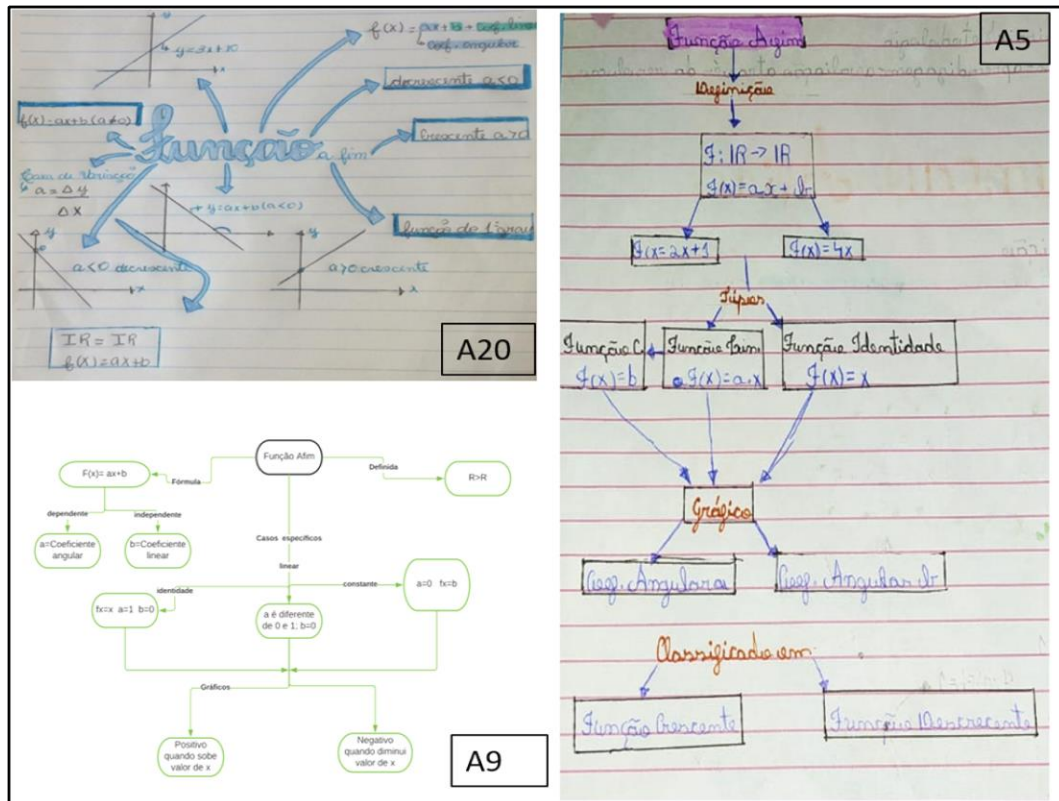 y
y=3x+10
x
f(x)=ax+b+coef. linear
coef. angular
decrescente a<0
f(x)=ax+b(a≠0)
Crescente a>0
Função a fim
taxa de variação
a = Δy
Δx
y=ax+b(a<0)
função do 1º grau
y
a<0 decrescente
x
y
a>0 crescente
x
IR = IR
f(x)=ax+b
A20
Função Afim
F(x)= ax+b
Fórmula
Definida
R>R
dependente
independente
a=Coeficiente
angular
b=Coeficiente
linear
Casos específicos
linear
constante
a=0 fx=b
identidade
fx=x a=1 b=0
a é diferente
de 0 e 1; b=0
Gráficos
Positivo
quando sobe
valor de x
Negativo
quando diminui
valor de x
A9
A5
Função Afim
Definição
F: IR -> IR
F(x)=ax+b
F(x=2x+1
F(x)=4x
Tipos
Função C.
F(x)=b
Função Lin.
F(x)=a.x
Função Identidade
F(x)=x
Gráfico
Coef. Angular a
Coef. Angular b
Classificado em
Função Crescente
Função Descrecente